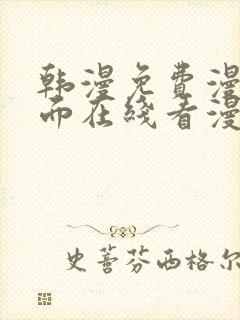 韩漫免费漫
而在线看漫
史蒂芬西格尔